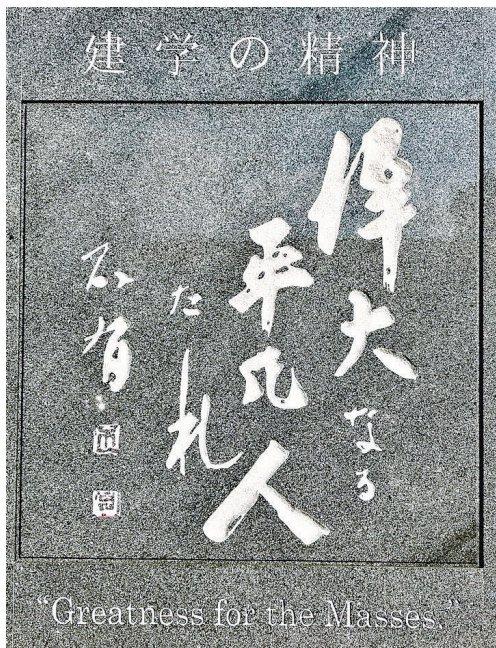 建学の精神
偉大なる
平凡人
たれ
“Greatness for the Masses.”